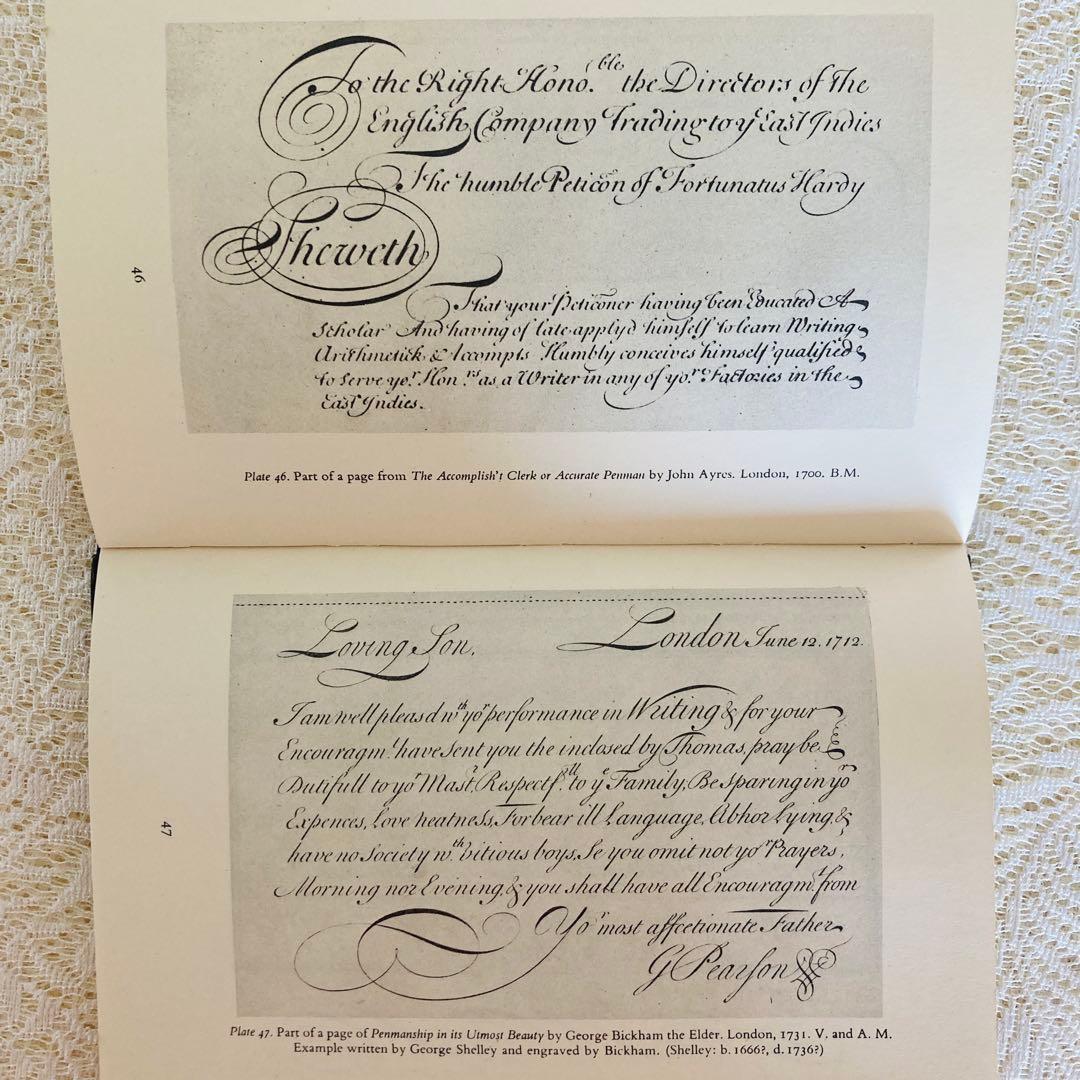 To the Right Hono.ble the Directors of the
English Company Trading to ye East Indies
The humble Peticon of Fortunatus Hardy
Sheweth
That your Peticoner having been Educated A
Scholar And having of late applyd himself to learn Writing
Arithmetick & Accompts Humbly conceives himself qualified
to serve yor. Hon.rs as a Writer in any of yor. Factories in the
East Indies.
46
Plate 46. Part of a page from The Accomplish't Clerk or Accurate Penman by John Ayres. London, 1700. B.M.
Loving Son,
London June 12. 1712.
I am well pleasd wth yor performance in Writing & for your
Encouragmt. have sent you the inclosed by Thomas, pray be
Dutifull to yor Mastr. Respectfll. to ye Family, Be sparing in yor
Expences, Love neatness, Forbear ill Language, Abhor Lying, &
have no Society wth. vitious boys, Se you omit not yor Prayers,
Morning nor Evening, & you shall have all Encouragmt. from
Yor most affectionate Father
G Pearson
47
Plate 47. Part of a page of Penmanship in its Utmost Beauty by George Bickham the Elder. London, 1731. V. and A. M.
Example written by George Shelley and engraved by Bickham. (Shelley: b. 1666?, d. 1736?)